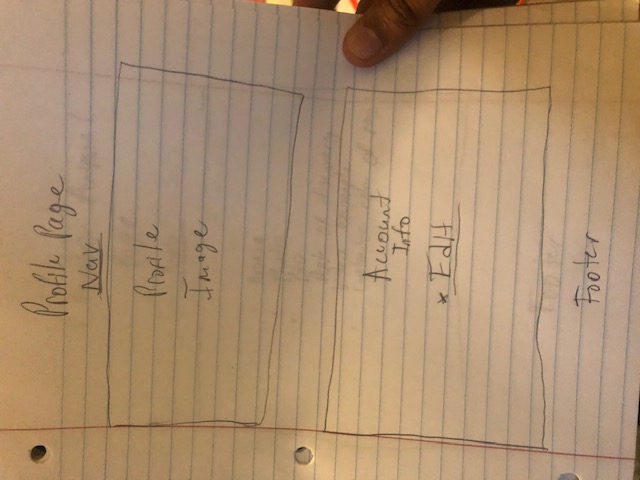 Profile Page
Nav
Profile
Image
Account
Info
* Edit
Footer